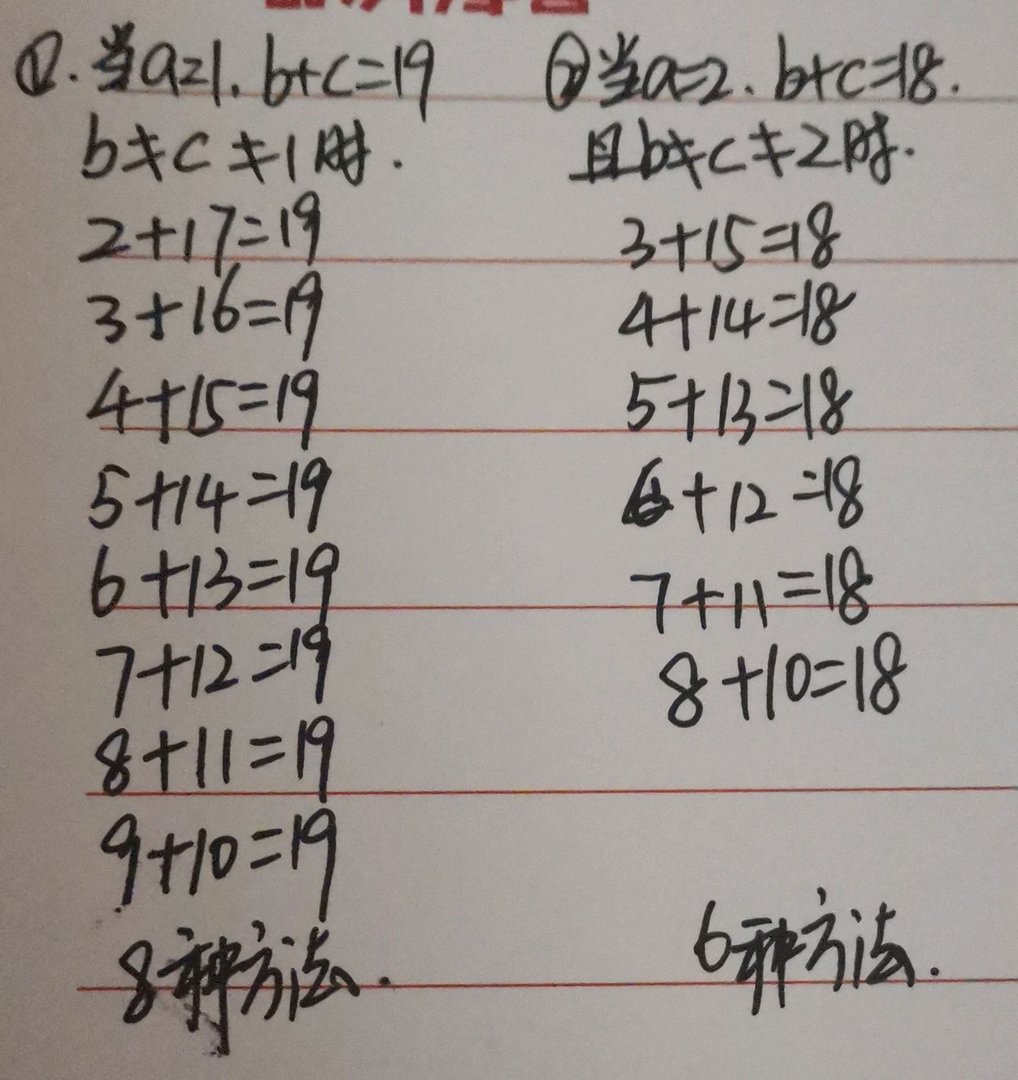 ①.当a=1.b+c=19
b≠c≠1时.
2+17=19
3+16=19
4+15=19
5+14=19
6+13=19
7+12=19
8+11=19
9+10=19
8种方法.
②当a=2.b+c=18.
且b≠c≠2时.
3+15=18
4+14=18
5+13=18
6+12=18
7+11=18
8+10=18
6种方法.